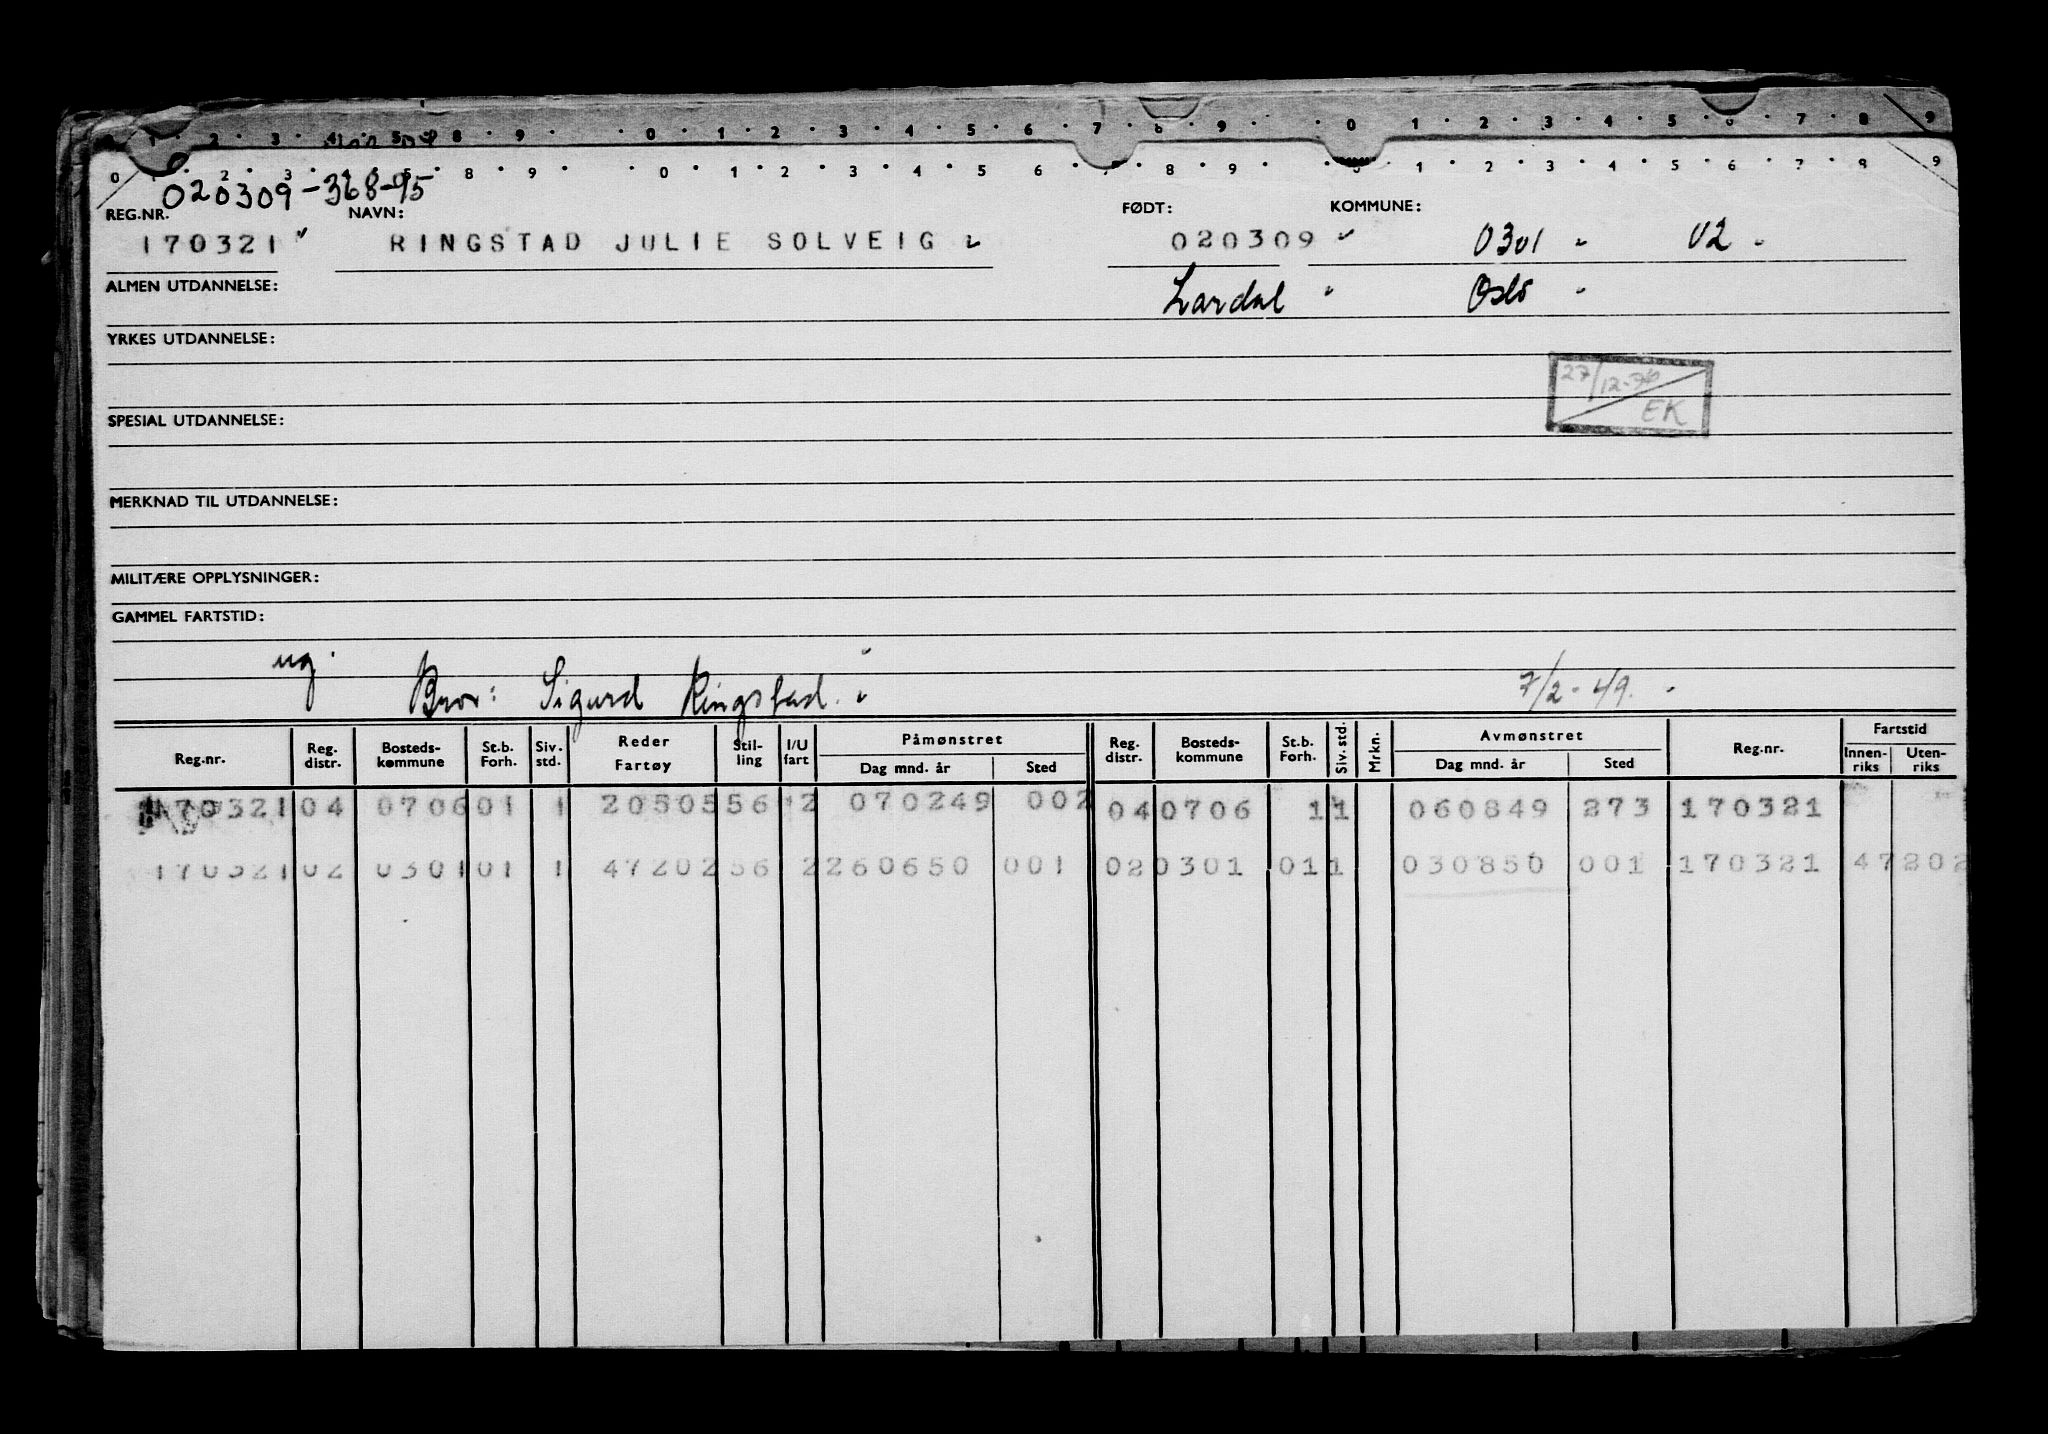 0 1 2 3 4 5 8 9 0 1 2 3 4 5 6 7 8 9 0 1 2 3 4 5 6 7 8 9
0 1 2 3 4 5 8 9 0 1 2 3 4 5 6 7 8 9 0 1 2 3 4 5 6 7 8 9
020309-368-95
REG.NR. NAVN: FØDT: KOMMUNE:
170321 RINGSTAD JULIE SOLVEIG 020309 0301 02
ALMEN UTDANNELSE: Lardal Oslo
YRKES UTDANNELSE:
27/12-76
EK
SPESIAL UTDANNELSE:
MERKNAD TIL UTDANNELSE:
MILITÆRE OPPLYSNINGER:
GAMMEL FARTSTID:
ug.
Bror: Sigurd Ringstad. 7/2-49.
Reg.nr. Reg. distr. Bosteds-kommune St.b. Forh. Siv. std. Reder Fartøy Stil-ling I/U fart Påmønstret Dag mnd. år Sted Reg. distr. Bosteds-kommune St.b. Forh. Siv. std. Mrkn. Avmønstret Dag mnd. år Sted Reg.nr. Fartstid Innen-riks Uten-riks
170321 04 0706 01 1 20505 56 2 070249 002 04 0706 1 1 060849 273 170321
170321 02 0301 01 1 47202 56 2 260650 001 02 0301 01 1 030850 001 170321 47202